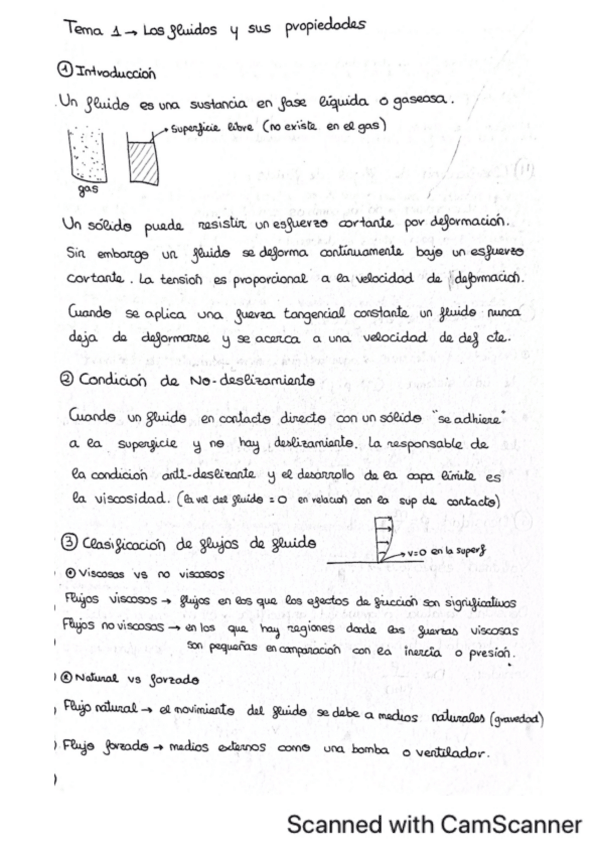 Tema 1 → Los fluidos y sus propiedades
① Introducción
Un fluido es una sustancia en fase líquida o gaseosa.
→ superficie libre (no existe en el gas)
gas
Un sólido puede resistir un esfuerzo cortante por deformación.
Sin embargo un fluido se deforma continuamente bajo un esfuerzo
cortante. La tensión es proporcional a la velocidad de deformación.
Cuando se aplica una fuerza tangencial constante un fluido nunca
deja de deformarse y se acerca a una velocidad de def cte.
② Condición de No-deslizamiento
Cuando un fluido en contacto directo con un sólido "se adhiere"
a la superficie y no hay deslizamiento. La responsable de
la condición anti-deslizante y el desarrollo de la capa límite es
la viscosidad. (la vel del fluido = 0 en relación con la sup de contacto)
③ Clasificación de flujos de fluido
→ v=0 en la superf
① Viscosos vs no viscosos
Flujos viscosos → flujos en los que los efectos de fricción son significativos
Flujos no viscosos → en los que hay regiones donde las fuerzas viscosas
son pequeñas en comparación con la inercia o presión.
② Natural vs forzado
Flujo natural → el movimiento del fluido se debe a medios naturales (gravedad)
Flujo forzado → medios externos como una bomba o ventilador.
Scanned with CamScanner